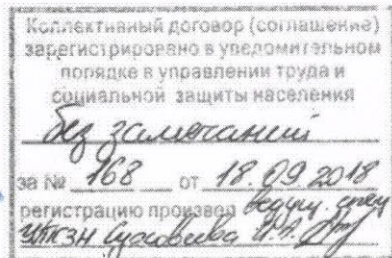 Коллективный договор (соглашение)
зарегистрировано в уведомительном
порядке в управлении труда и
социальной защиты населения
без замечаний
за № 168 от 18.09.2018
регистрацию произвел ведущ. спец